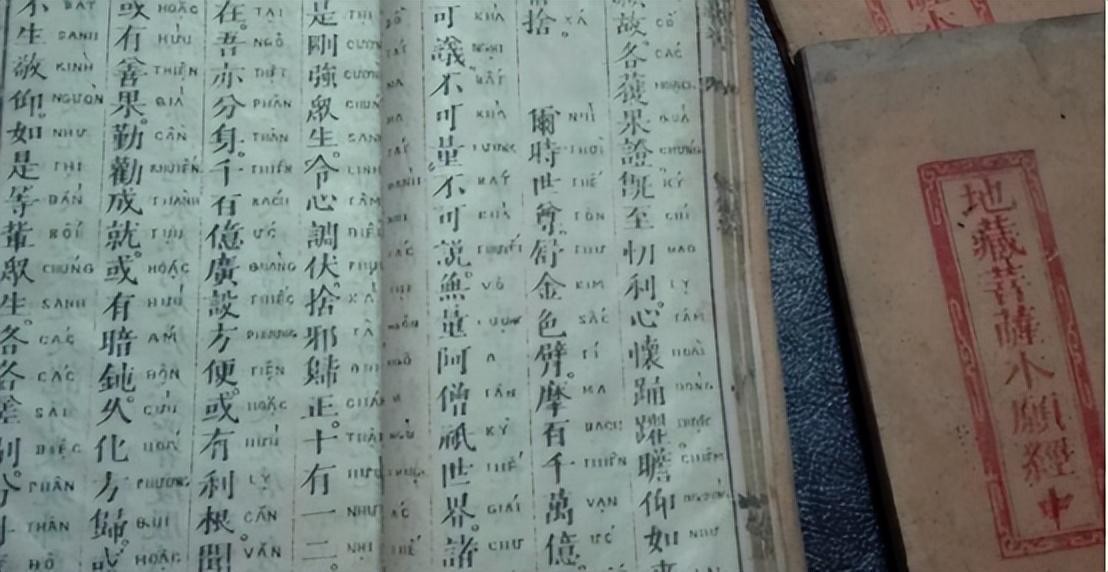 故。各獲果證旣至忉利。心懷踊躍。瞻仰如
CỐ CÁC HOẠCH QUẢ CHỨNG KÝ CHÍ ĐAO LỴ TÂM HOÀI DŎNG DƯỢC CHIÊM NHƯ
捨。爾時世尊。舒金色臂。摩百千萬億。
XẢ NHĨ THỜI THẾ TÔN THƯ KIM SẮC TÍ MA BÁCH THIÊN VẠN ỨC
可議。不可量。不可説。無量阿僧祇世界。諸
KHẢ NGHỊ BẤT KHẢ LƯỢNG BẤT KHẢ THUYẾT VÔ LƯỢNG A TĂN KỲ THẾ GIÁI CHƯ
是剛強眾生。令心調伏。捨邪歸正。十有一二。
THỊ CƯƠN CƯƠN CHUN SANH LINH TÂM ĐIỀU PHỤ XẢ TÀ CHÁN THẬP HƯU NHƯ NHỊ
在。吾亦分身。千百億廣設方便。或有利根。聞
TẠI NGÔ DIỆT PHÂN THÂN THIÊN BÁCH ỨC QUẢNG THIẾC PHƯƠNG TIỆN HOẶC HỮU LỴ CĂN VĂN
或有善果。勤勸成就。或有暗鈍。久化方歸。或
HOẶC HỮU THIỆN QUẢ CẦN KHUYẾN THÀNH TỰU HOẶC HỮU ÁM ĐỘN CỬU HOÁ PHƯƠNG QUI HOẶC
不生敬仰。如是等輩眾生。各各差別。分身
BẤT SANH KINH NGƯỠN NHƯ THỊ ĐẲN BỐI CHÚNG SANH CÁC CÁC SÁI BIỆC PHÂN THÂN ĐỘ
地藏菩薩本願經中